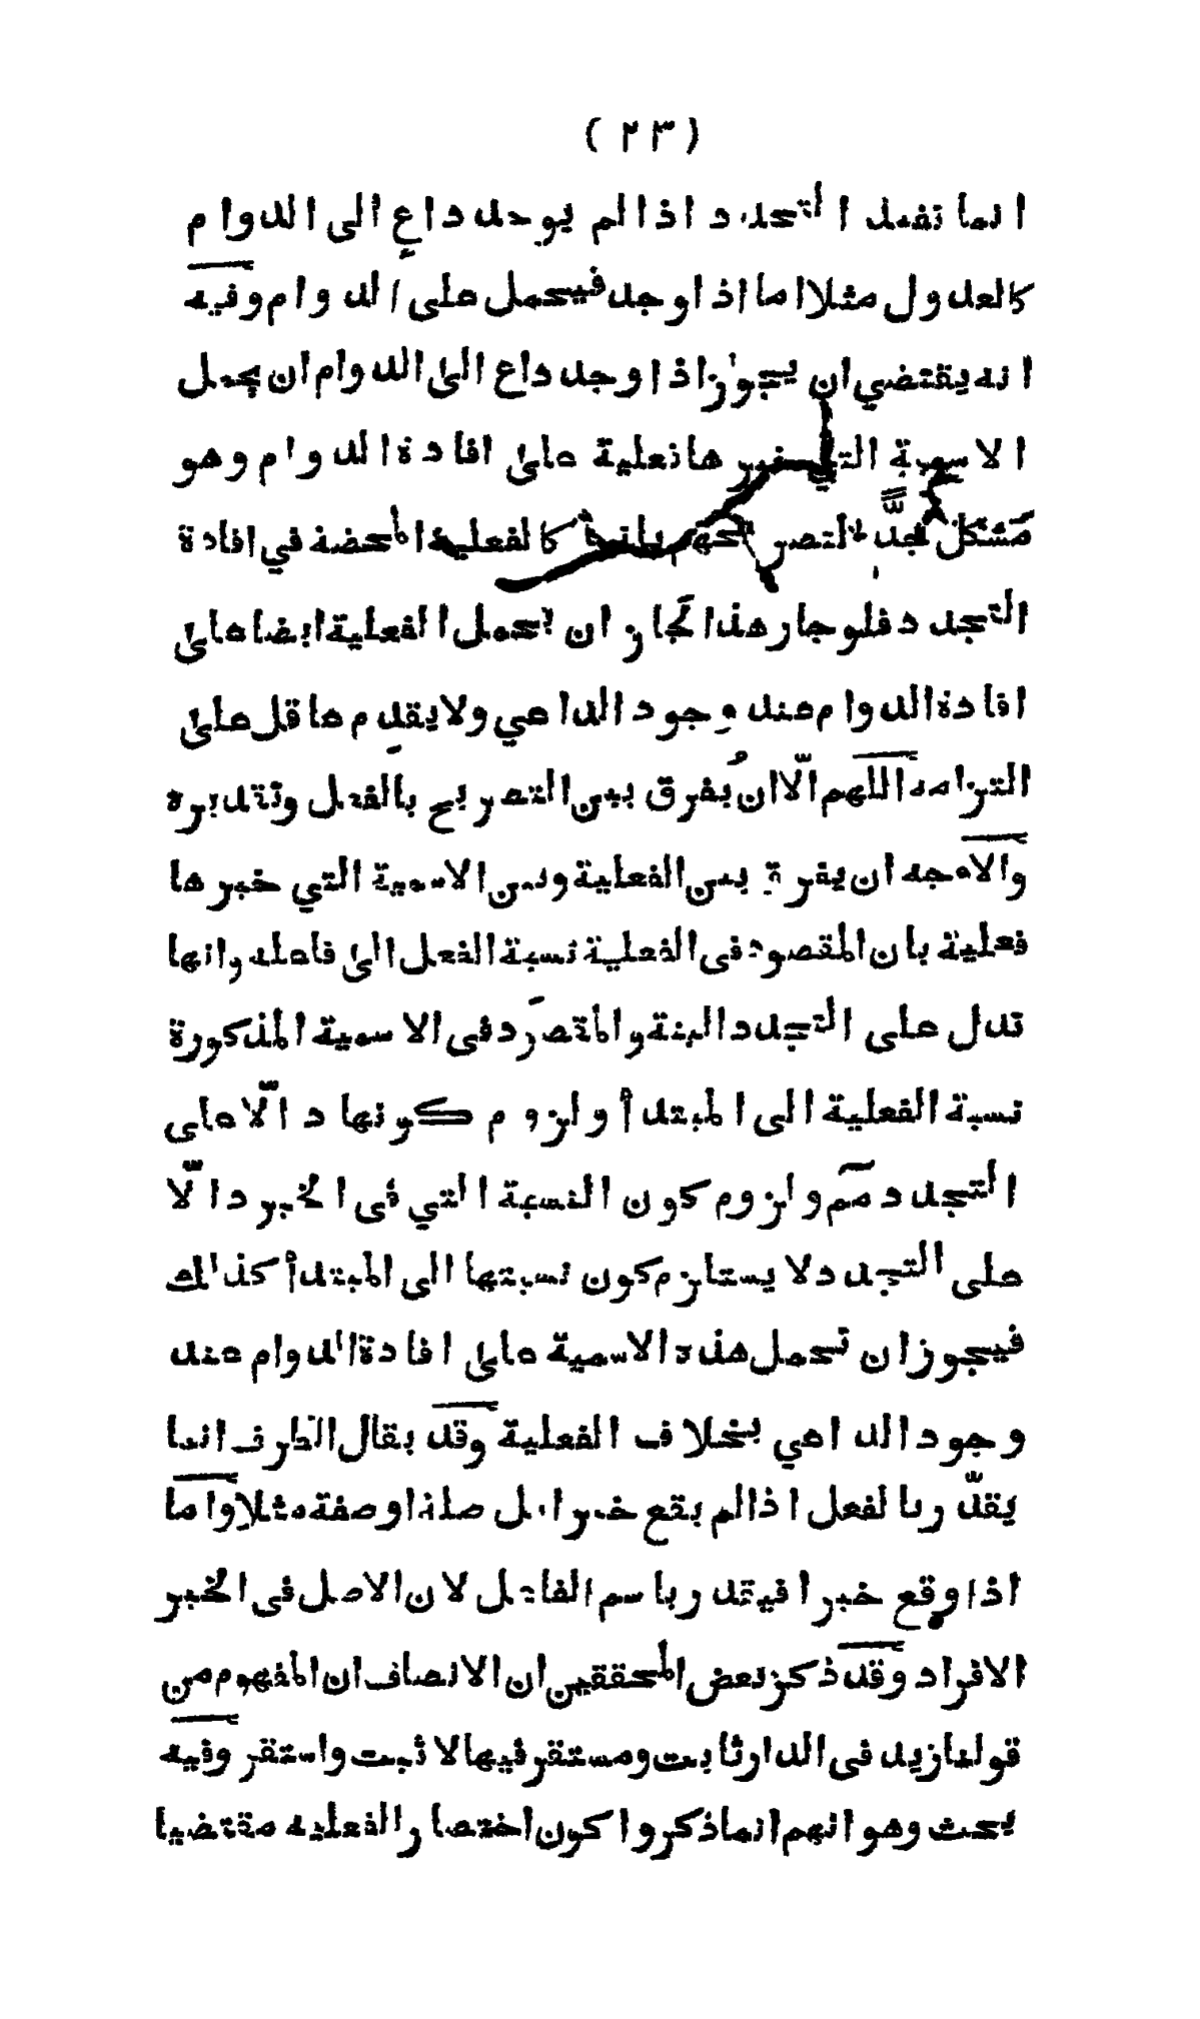 ( ٢٣ )
انما تفيد التجدد اذا لم يوجد داعٍ الى الدوام
كالعدول مثلا اما اذا وجد فيحمل على الدوام وفيه
انه يقتضي ان يجوز اذا وجد داع الى الدوام ان يحمل
الاسمية التي خبرها فعلية على افادة الدوام وهو
مشكل جدًّا لتصريحهم بانها كالفعلية المحضة في افادة
التجدد فلو جاز هذا لجاز ان تحمل الفعلية ايضا على
افادة الدوام عند وجود الداعي ولا يقدِم عاقل على
التزامه اللهم الّا ان يُفرق بين التصريح بالفعل وتقديره
والاوجه ان يفرق بين الفعلية وبين الاسمية التي خبرها
فعلية بان المقصود فى الفعلية نسبة الفعل الى فاعله وانها
تدل على التجدد البتة والمقصود فى الاسمية المذكورة
نسبة الفعلية الى المبتدأ ولزوم كونها دالّا على
التجدد مم ولزوم كون النسبة التي فى الخبر دالّا
على التجدد لا يستلزم كون نسبتها الى المبتدأ كذلك
فيجوز ان تحمل هذه الاسمية على افادة الدوام عند
وجود الداعي بخلاف الفعلية وقد يقال الظرف انما
يقدّر بالفعل اذا لم يقع خبرا بل صلة او صفة مثلا واما
اذا وقع خبرا فيقدر باسم الفاعل لان الاصل فى الخبر
الافراد وقد ذكر بعض المحققين ان الانصاف ان المفهوم من
قولنا زيد فى الدار ثابت ومستقر فيها لا ثبت واستقر وفيه
بحث وهو انهم انما ذكروا كون اختصار الفعلية مقتضيا